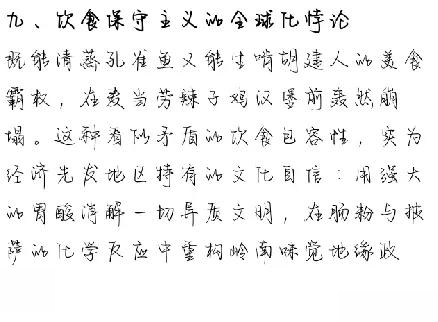 九、饮食保守主义的全球化悖论
既能清蒸孔雀鱼又能生啃胡建人的美食
霸权，在麦当劳辣子鸡汉堡前轰然崩
塌。这种看似矛盾的饮食包容性，实为
经济先发地区特有的文化自信：用强大
的胃酸消解一切异质文明，在肠粉与披
萨的化学反应中重构岭南味觉地缘政